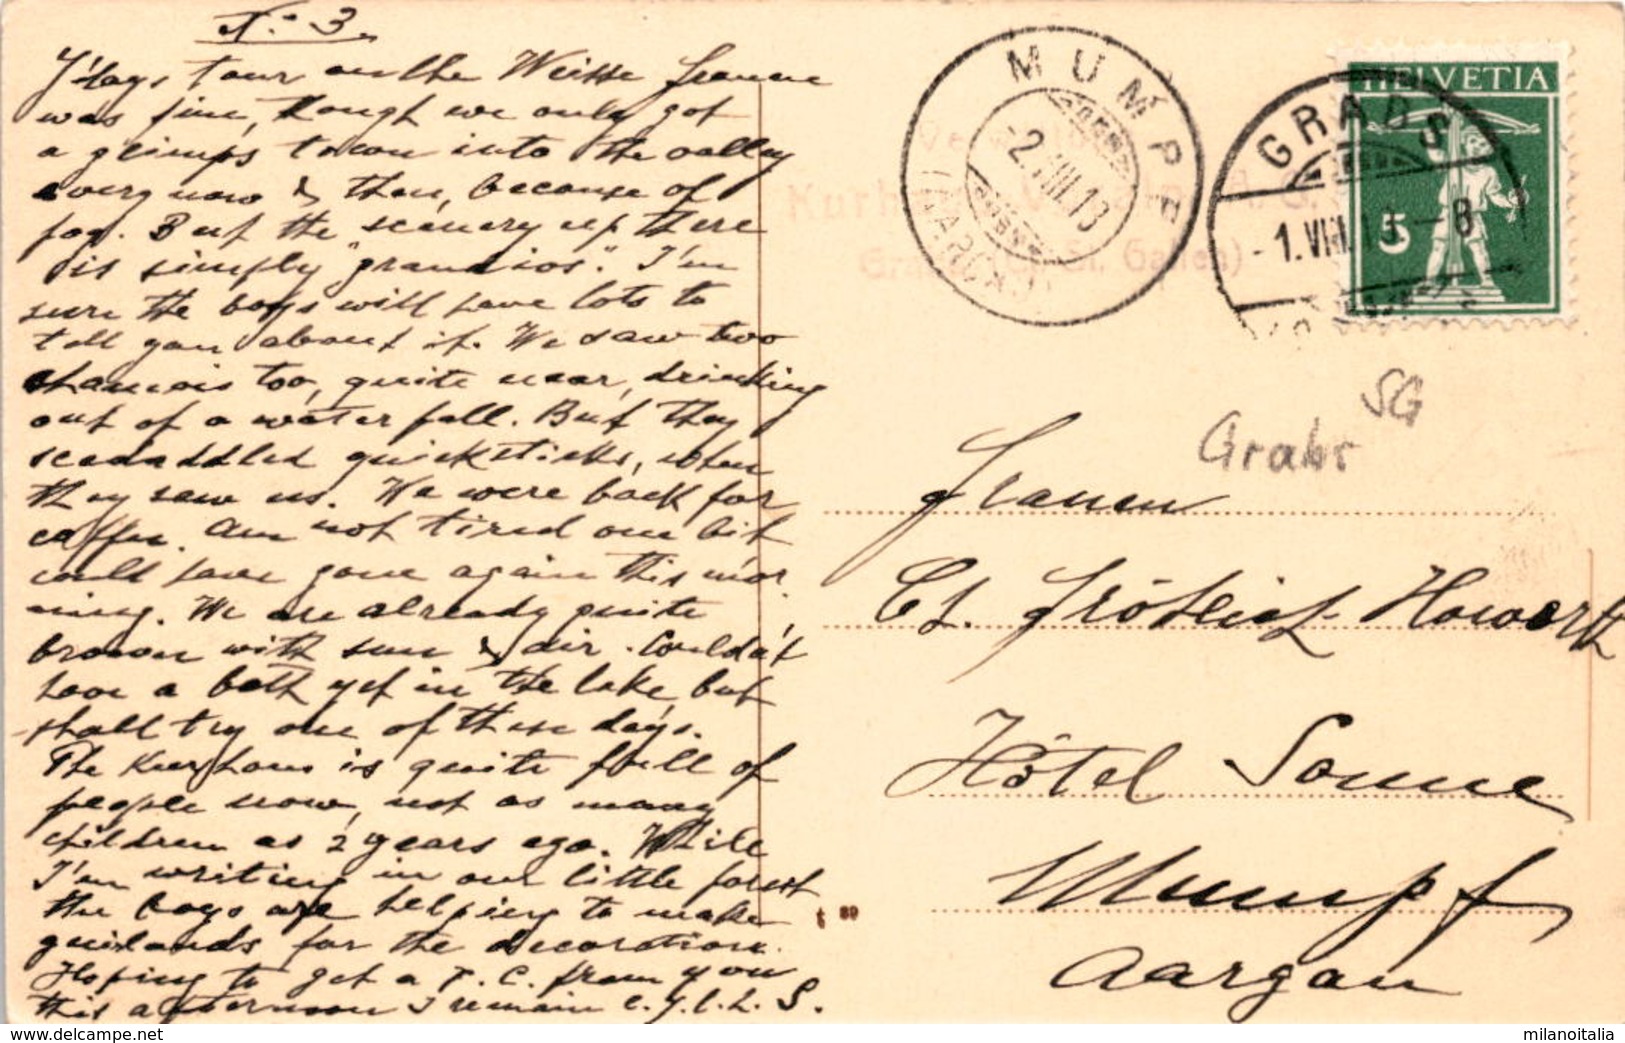 No. 3.
Y'day's tour on the Weisse Frauen
was fine, though we only got
a glimps down into the valley
every now & then, because of
fog. But the scenery up there
is simply "grandios". I'm
sure the boys will have lots to
tell you about it. We saw two
chamois too, quite near, drinking
out of a water fall. But they
scedaddled quicksticks, when
they saw us. We were back for
coffee. Am not tired one bit
could have gone again this mor
ning. We are already quite
brown with sun & air. Couldn't
have a bath yet in the lake, but
shall try one of these days.
The Kurhaus is quite full of
people now, not as many
children as 2 years ago. While
I'm writing in our little forest
the boys are helping to make
guilands for the decoration.
Hoping to get a P.C. from you
this afternoon I remain e.y.l.l. S.
MUMPF
(AARGAU)
-2.VIII.13
GRABS
-1.VIII.13-8
HELVETIA
5
Kurhaus
Grabs (Ct. St. Gallen)
SG
Grabs
Frauen
Ct. Fröhlich-Howorth
Hôtel Sonne
Mumpf
Aargau
milanoitalia